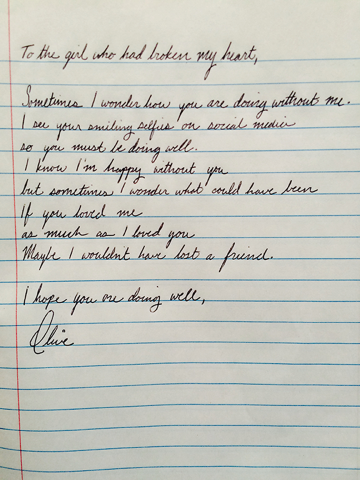 To the girl who had broken my heart,
Sometimes I wonder how you are doing without me.
I see your smiling selfies on social media
so you must be doing well.
I know I'm happy without you
but sometimes I wonder what could have been
If you loved me
as much as I loved you
Maybe I wouldn't have lost a friend.
I hope you are doing well,
Olive